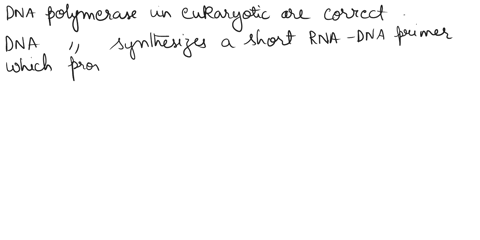 DNA polymerase un eukaryotic are correct.
DNA " synthesizes a short RNA-DNA primer
which pros